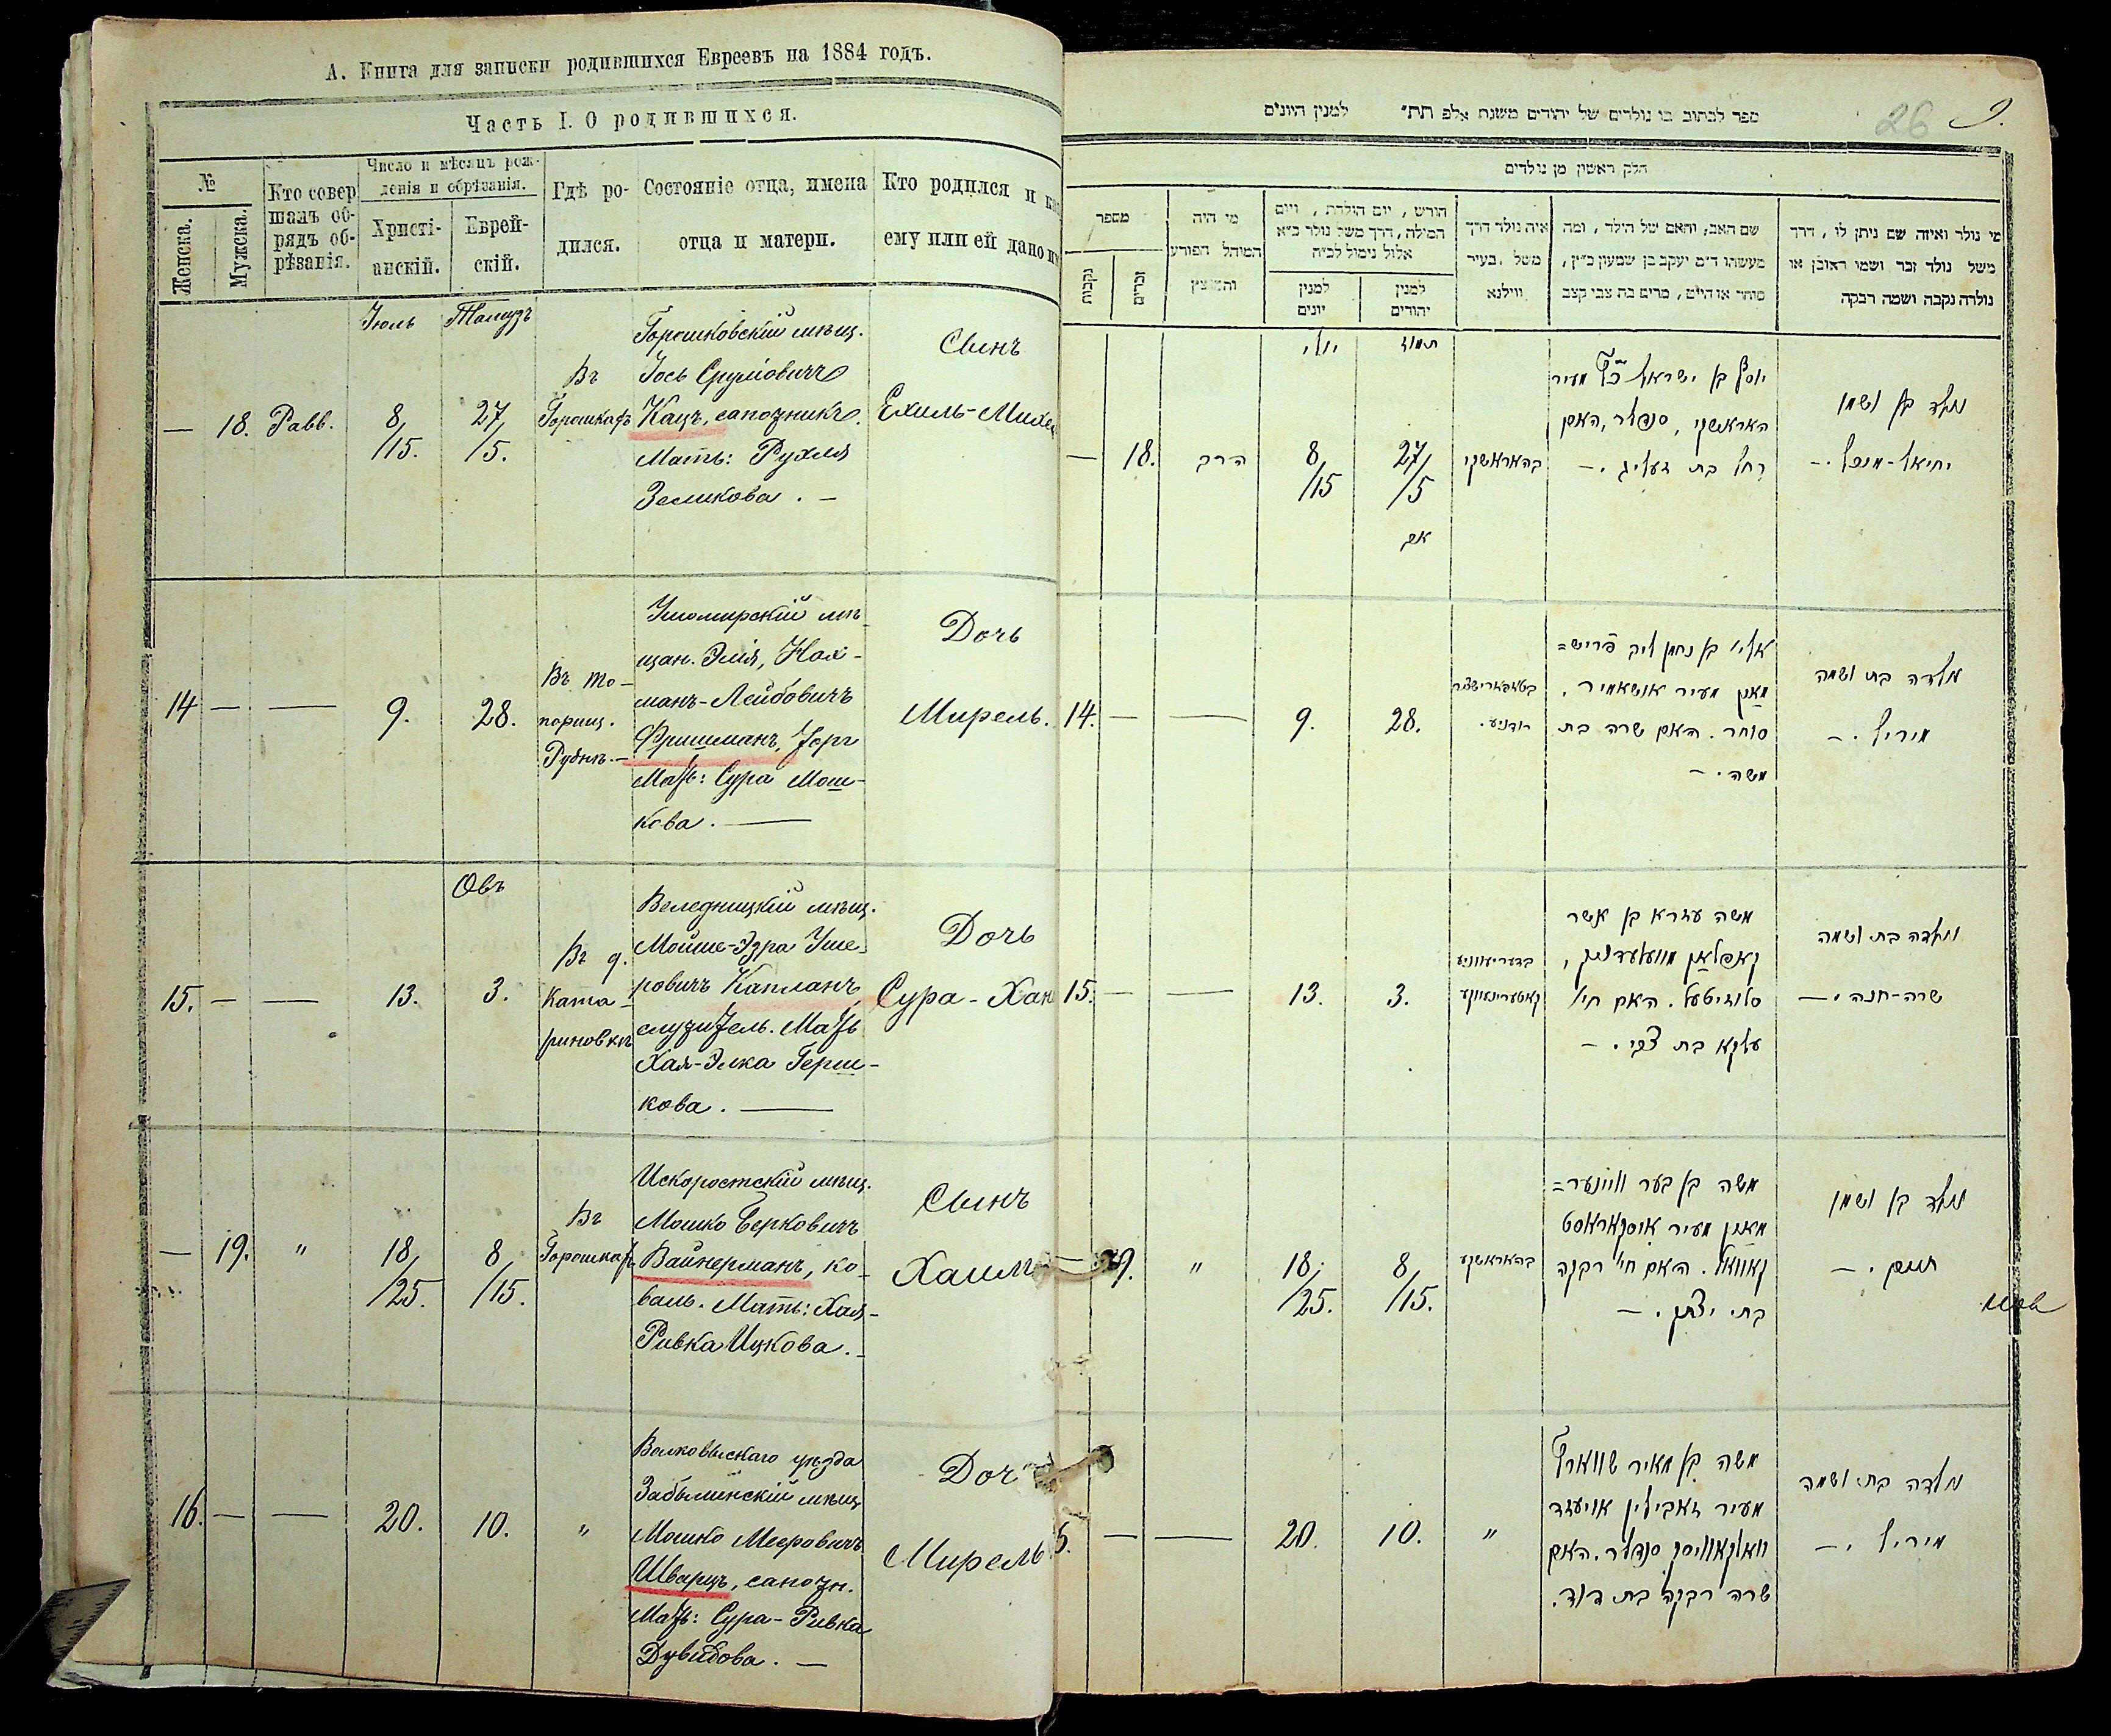 А. Книга для записки родившихся Евреевъ на 1884 годъ.
Часть I. О родившихся.
№
Женска.
Мужска.
Кто совер
шалъ об-
рядъ об-
рѣзанія.
Число и мѣсяцъ рож-
денія и обрѣзанія.
Христі-
анскій.
Еврей-
скій.
Гдѣ ро-
дился.
Состояніе отца, имена
отца и матери.
Кто родился и
ему или ей дано
Іюль
Тамузъ
— 18. Равв.
8/15.
27/5.
Въ
Горошкахъ
Горошковскій мѣщ.
Іось Сруліовичъ
Кацъ, сапожникъ.
Мать: Рухля
Зеликова. —
Сынъ
Ехиль-Михе
14 — — 9. 28.
Въ То-
порищ.
Руднѣ. —
Ушомирскій мѣ-
щан. Элія, Нах-
манъ-Лейбовичъ
Фришманъ, торг
Мать: Сура Мош-
кова. —
Дочь
Мирель.
Овъ
15. — — 13. 3.
Въ д.
Ката-
риновкѣ
Веледницкій мѣщ.
Мойше-Эзра Уше-
ровичъ Капланъ,
служитель. Мать
Хая-Элка Герш-
кова. —
Дочь
Сура-Хан
— 19. "
18/25.
8/15.
Въ
Горошкахъ
Искоростскій мѣщ.
Мошко Берковичъ
Вайнерманъ, ко-
валь. Мать: Хая-
Ривка Ицкова. —
Сынъ
Хаимъ
16. — — 20. 10. "
Волковыскаго уѣзда
Забылинскій мѣщ.
Мошко Мееровичъ
Шварцъ, сапожн.
Мать: Сура-Ривка
Дувидова. —
Дочь
Мирель
ספר לכתוב בו נולדים של יהודים משנת אלפ תת״ למנין היונים
26 9.
חלק ראשון מן נולדים
מספר
נקבות
זכרים
מי היה
המוהל הפורע
והמוצץ
חורש, יום הולדת, ויום
המילה, דרך משל נולד כ״א
אלול נימול לכ״ח
למנין
יונים
למנין
יהודים
איה נולד דרך
משל, בעיר
ווילנא
שם האב, והאם של הילד, ומה
מעשהו ד״מ יעקב בן שמעון כ״ץ,
סוחר או חייט, מרים בת צבי קצב
מי נולד ואיזה שם ניתן לו, דרך
משל נולד זכר ושמו ראובן או
נולדה נקבה ושמה רבקה
יולי
תמוז
— 18. הרב
8/15
27/5
אב
בהאראשקי
יוסף בן ישראל כ״ץ מעיר
האראשקי, סנדלר, האם
רחל בת זעליג. —
נולד בן ושמו
יחיאל-מיכל. —
14. — — 9. 28.
בטאפארישצר
רודניע.
אלי׳ בן נחמן ליב פריש=
מאן מעיר אושאמיר,
סוחר. האם שרה בת
משה. —
נולדה בת ושמה
מירל. —
15. — — 13. 3.
בדעריעווניע
קאטערינעווקע
משה עזרא בן אשר
קאפלאן מוועלעדניק,
סלוזיטעל. האם חי׳
עלקא בת צבי. —
נולדה בת ושמה
שרה-חנה. —
— 19. "
18/25.
8/15.
בהאראשקע
משה בן בער וויינער=
מאן מעיר איסקאראסט
קאוואל. האם חי׳ רבקה
בת יצחק. —
נולד בן ושמו
חיים. —
— — 20. 10. "
משה בן מאיר שווארץ
מעיר זאבילין אויעזד
וואלקאוויסק סנדלר. האם
שרה רבקה בת דוד.
נולדה בת ושמה
מירל. —